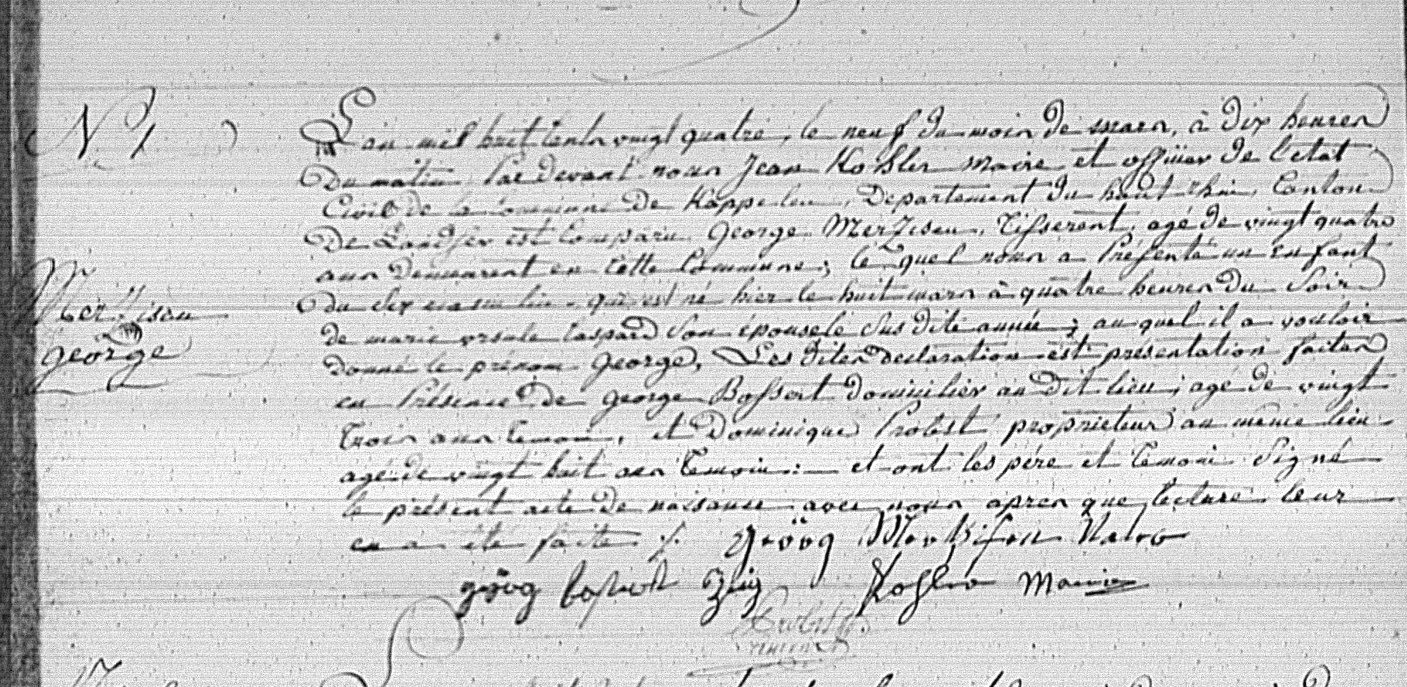 N 1
L'an mil huit cents vingt quatre, le neuf du mois de mars, à dix heures
Du matin, Par devant nous Jean Kohler Maire et officier de l'etat
Civil de la Commune de Kappelen, Departement du haut Rhin, Canton
De Landser est Comparu George Merzisen, Tisserent, agé de vingt quatre
ans demeurent en cette Commune; le quel nous a Présenté un Enfant
Du Sex masculin, qui est né hier le huit mars à quatre heures du Soir
Merzisen
George
de marie ursule Caspard Son épouse le Sus dite année; au quel il a vouloir
donné le prénom George, Les dites declaration est présentation faites
en Présence de George Bossert dominilier au Dit lieu, agé de vingt
Trois ans Temoin, et Dominique Probst proprieteur au même lieu
agé de vingt huit ans Temoin: et ont les pére et Temoin Signé
le présent acte de naisance avec nous apres que lecture leur
en a été faite
Görg Merzisen Vater
görg bossert Zeig Kohler Maire
Probst